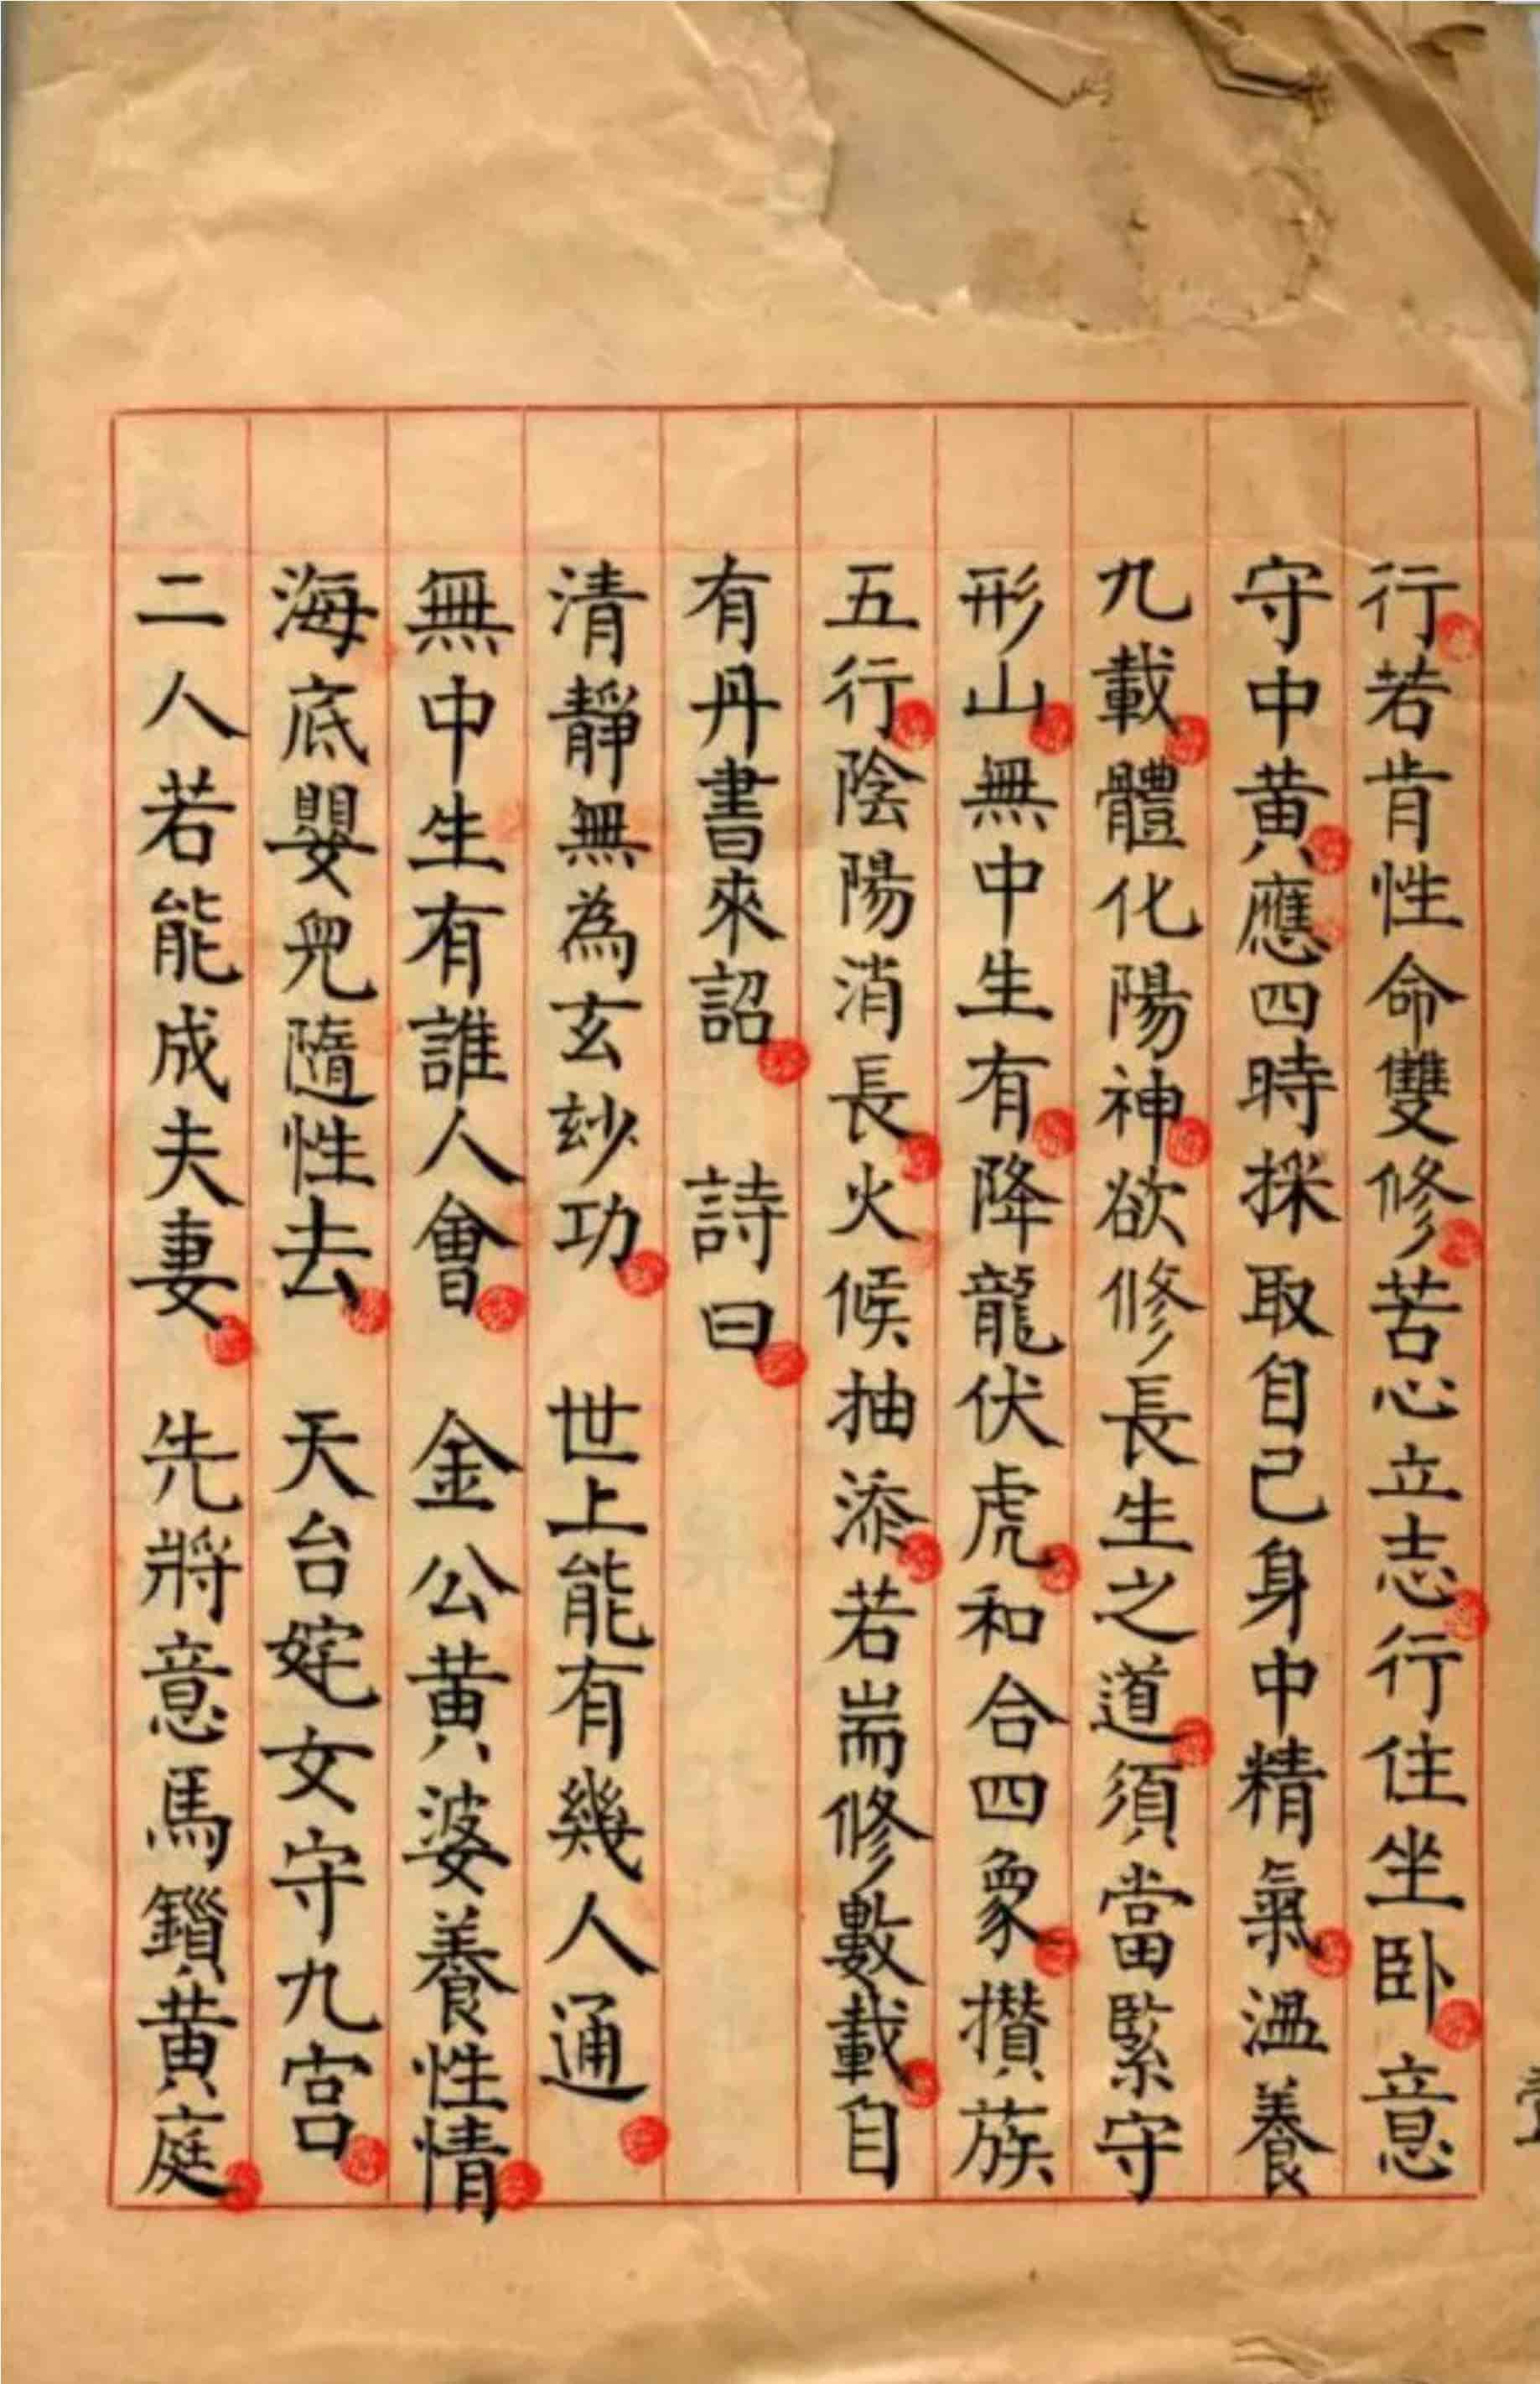 行若肯性命雙修苦心立志行住坐卧意
守中黃應四時採取自己身中精氣溫養
九載體化陽神欲修長生之道須當緊守
形山無中生有降龍伏虎和合四象攢蔟
五行陰陽消長火候抽添若耑修數載自
有丹書來詔　詩曰
清靜無為玄玅功　世上能有幾人通
無中生有誰人會　金公黃婆養性情
海底嬰兒隨性去　天台姹女守九宮
二人若能成夫妻　先將意馬鎖黃庭